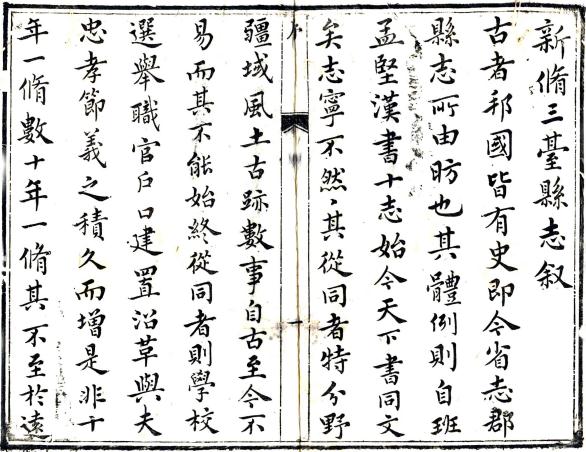 新脩三臺縣志叙
古者邦國皆有史即今省志郡
縣志所由昉也其體例則自班
孟堅漢書十志始今天下書同文
矣志寧不然〻其從同者特分野
疆域風土古跡數事自古至今不
易而其不能始終從同者則學校
選舉職官戶口建置沿革與夫
忠孝節義之積久而增是非十
年一脩數十年一脩其不至於遠